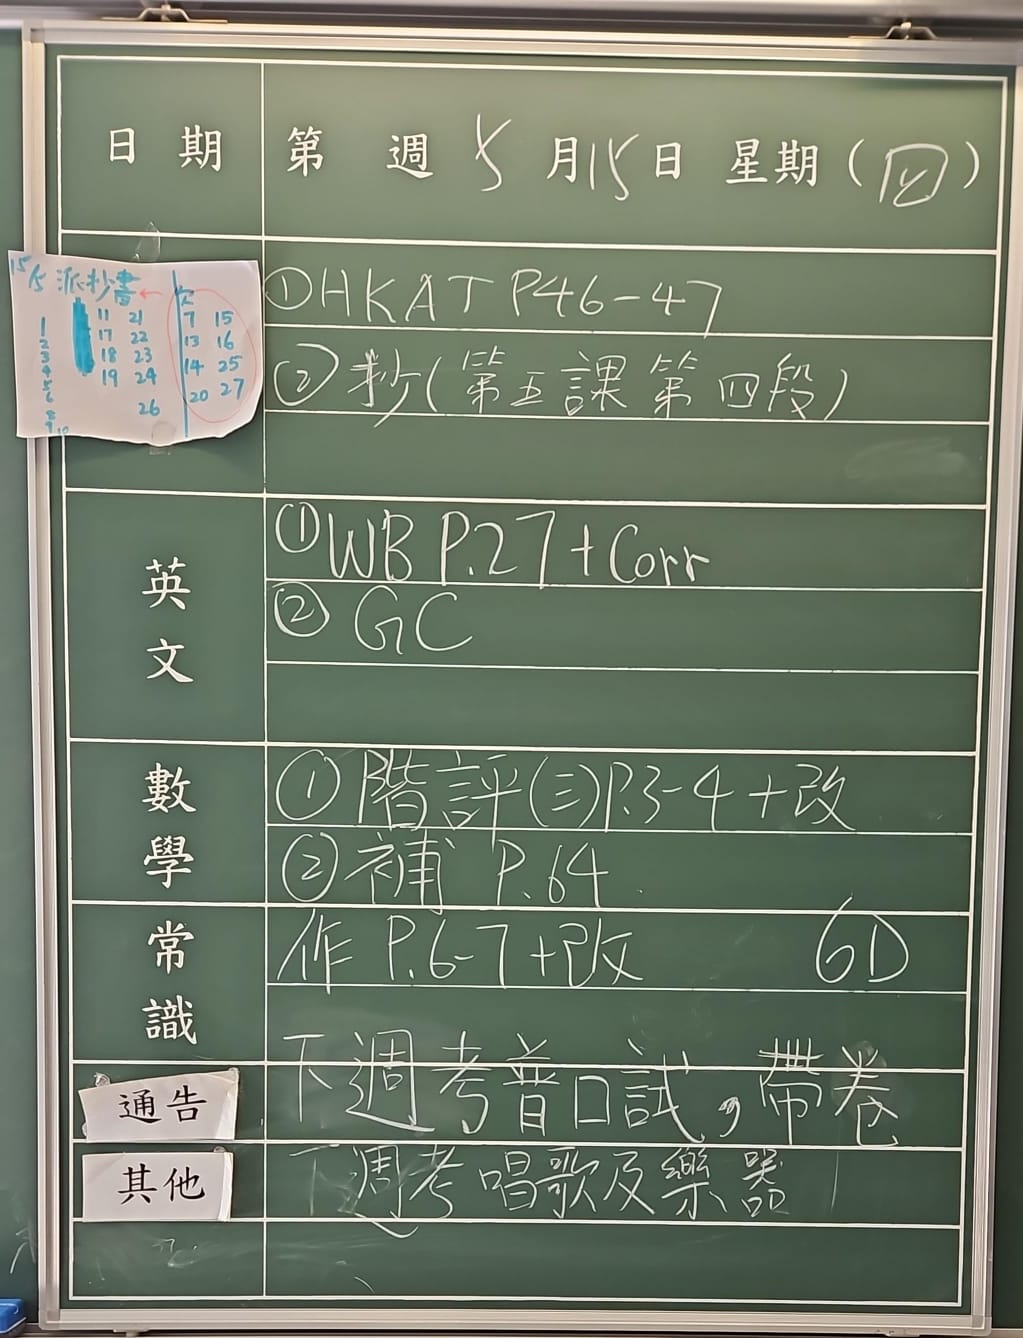 日期 第 週 5月15日 星期(四)
15/5 派抄書 ← 欠
1 11 21 7 15
2 17 22 13 16
3 18 23 14 25
4 19 24 20 27
5
6
8 26
9 10
①HKAT P46-47
②抄(第五課第四段)
英文
①WB P.27+Corr
②GC
數學
①階評(三)P.3-4+改
②補 P.64
常識
作 P.6-7+改 GD
通告
下週考普口試,帶卷
其他
下週考唱歌及樂器